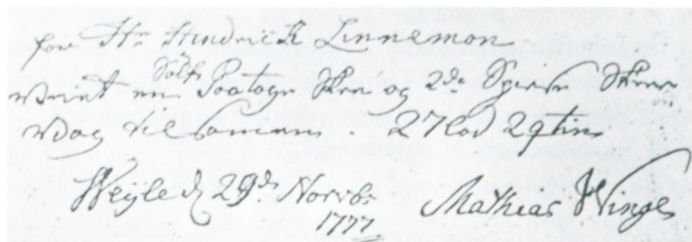 for Hr Hindrich Linnemon
en Sølf Potage Skee og 2de Spise Skeer
til samens. 27 lod 2 qtin
Weyle d 29de Novbr
1777 Mathias Winge